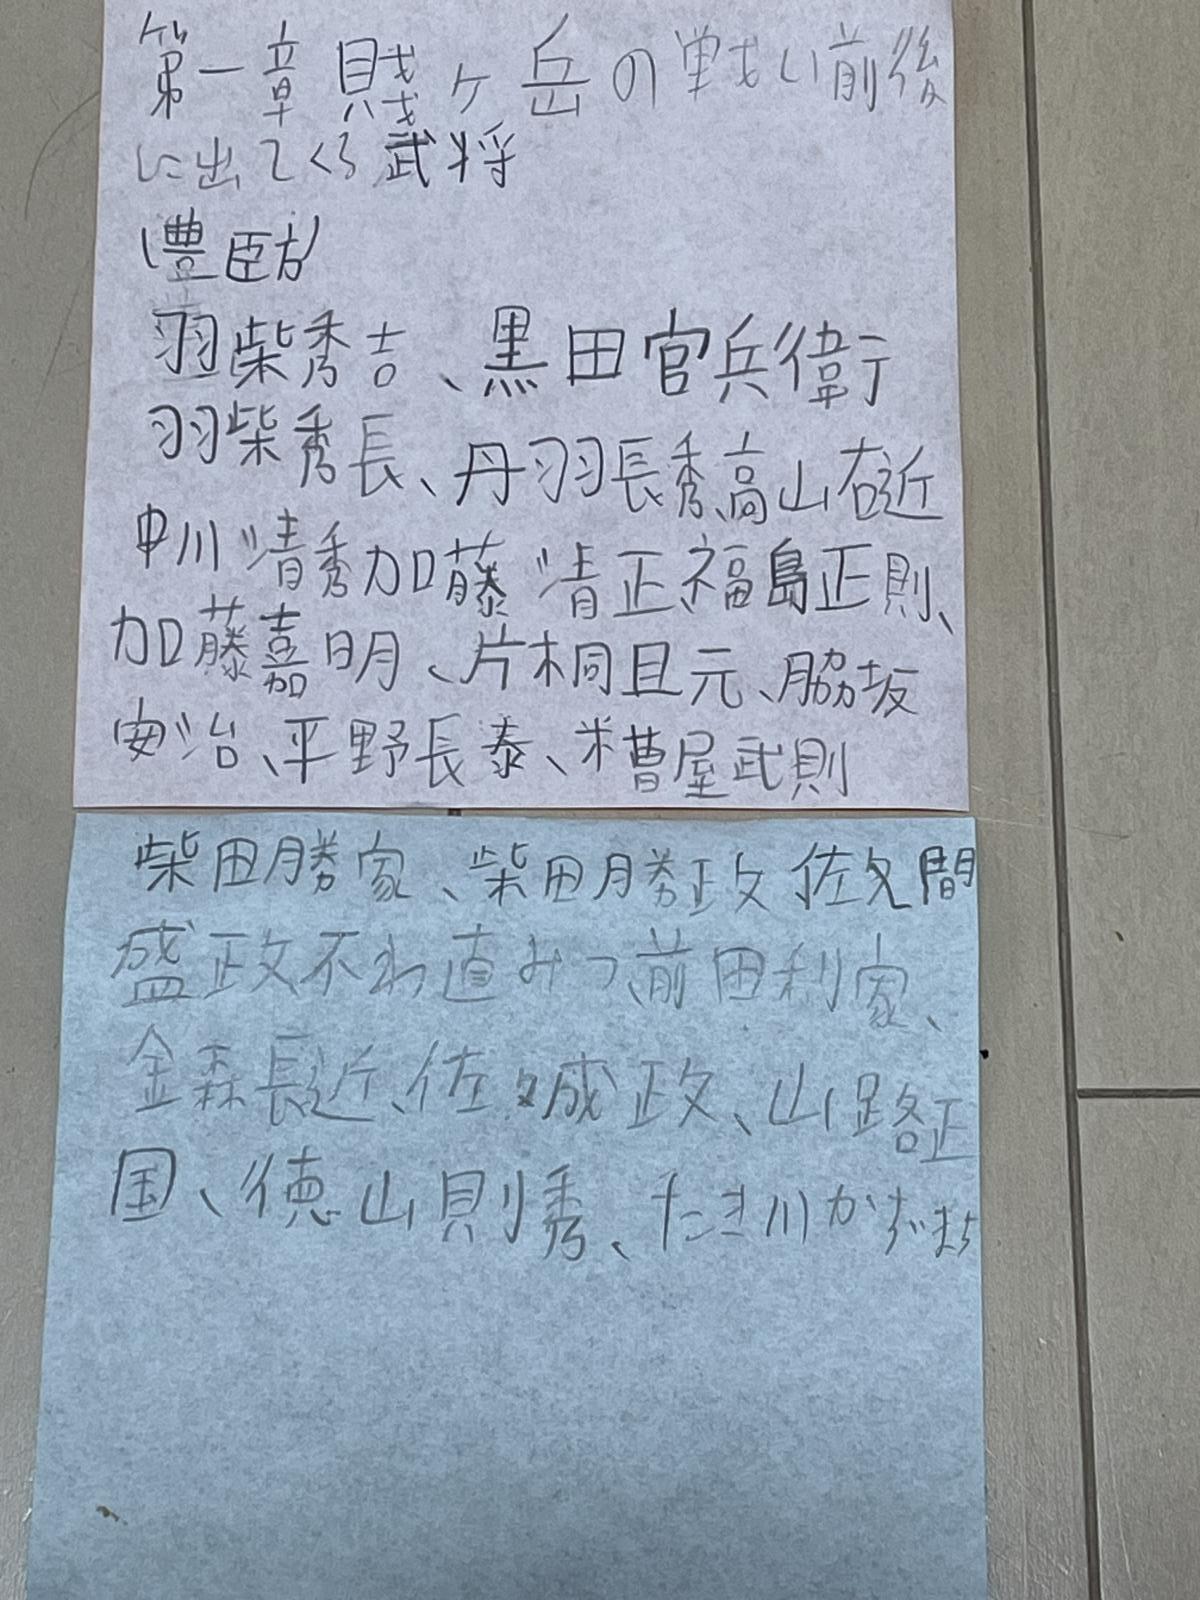 第一章賤ヶ岳の戦い前後
に出てくる武将
(豊臣方)
羽柴秀吉、黒田官兵衛
羽柴秀長、丹羽長秀、高山右近
中川清秀加藤清正、福島正則、
加藤嘉明、片桐且元、脇坂
安治、平野長泰、糟屋武則
柴田勝家、柴田勝政佐久間
盛政不わ直みつ、前田利家、
金森長近、佐々成政、山路正
国、徳山則秀、たき川かずます